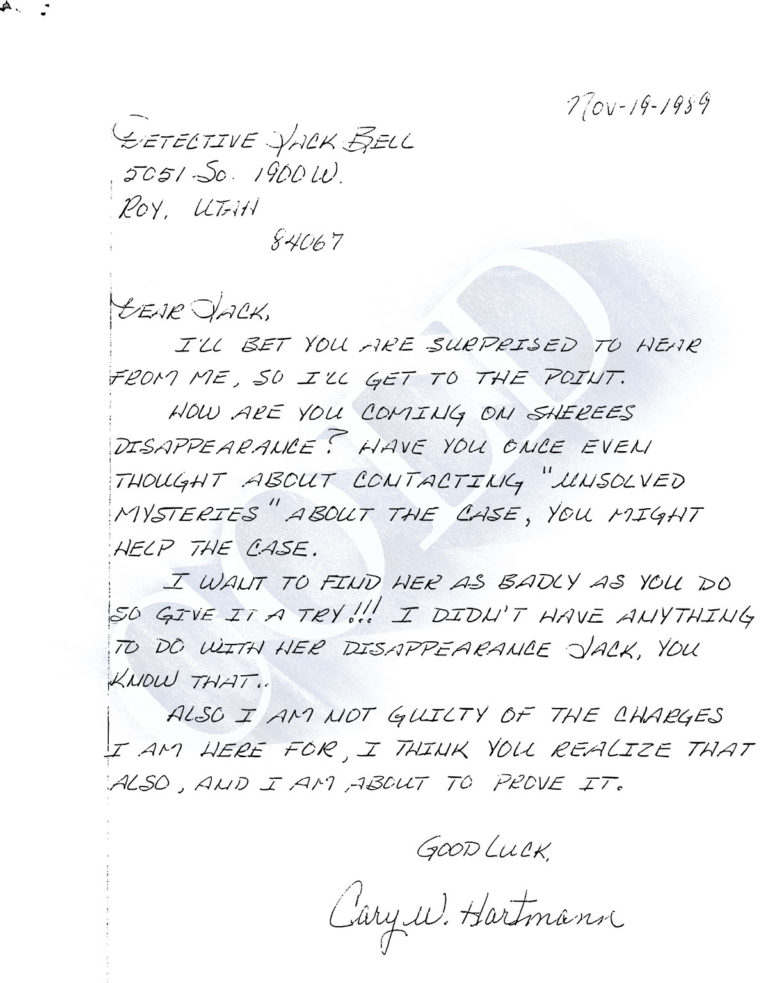 Nov-19-1989
DETECTIVE JACK BELL
5051 So. 1900 W.
ROY, UTAH
84067
DEAR JACK,
I'LL BET YOU ARE SURPRISED TO HEAR
FROM ME, SO I'LL GET TO THE POINT.
HOW ARE YOU COMING ON SHEREES
DISAPPEARANCE? HAVE YOU ONCE EVEN
THOUGHT ABOUT CONTACTING "UNSOLVED
MYSTERIES" ABOUT THE CASE, YOU MIGHT
HELP THE CASE.
I WANT TO FIND HER AS BADLY AS YOU DO
SO GIVE IT A TRY!!! I DIDN'T HAVE ANYTHING
TO DO WITH HER DISAPPEARANCE JACK, YOU
KNOW THAT..
ALSO I AM NOT GUILTY OF THE CHARGES
I AM HERE FOR, I THINK YOU REALIZE THAT
ALSO, AND I AM ABOUT TO PROVE IT.
GOOD LUCK,
Cary W. Hartmann
COLD